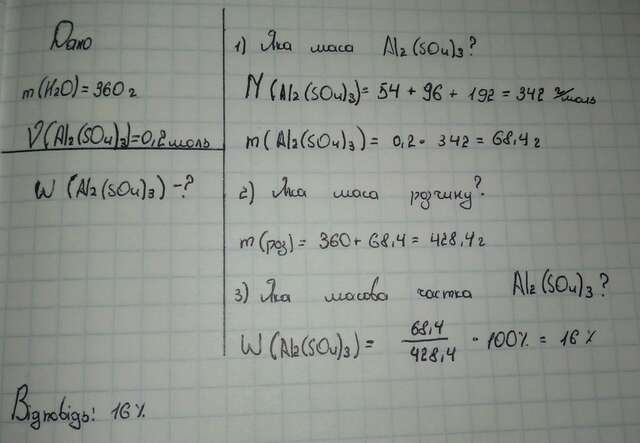 Дано
m(H2O) = 360 г
V(Al2(SO4)3) = 0,2 моль
W (Al2(SO4)3) - ?
1) Яка маса Al2(SO4)3?
M (Al2(SO4)3) = 54 + 96 + 192 = 342 г/моль
m(Al2(SO4)3) = 0,2 · 342 = 68,4 г
2) Яка маса розчину?
m(роз) = 360 + 68,4 = 428,4 г
3) Яка масова частка Al2(SO4)3?
W (Al2(SO4)3) = 68,4/428,4 · 100% = 16%
Відповідь: 16%